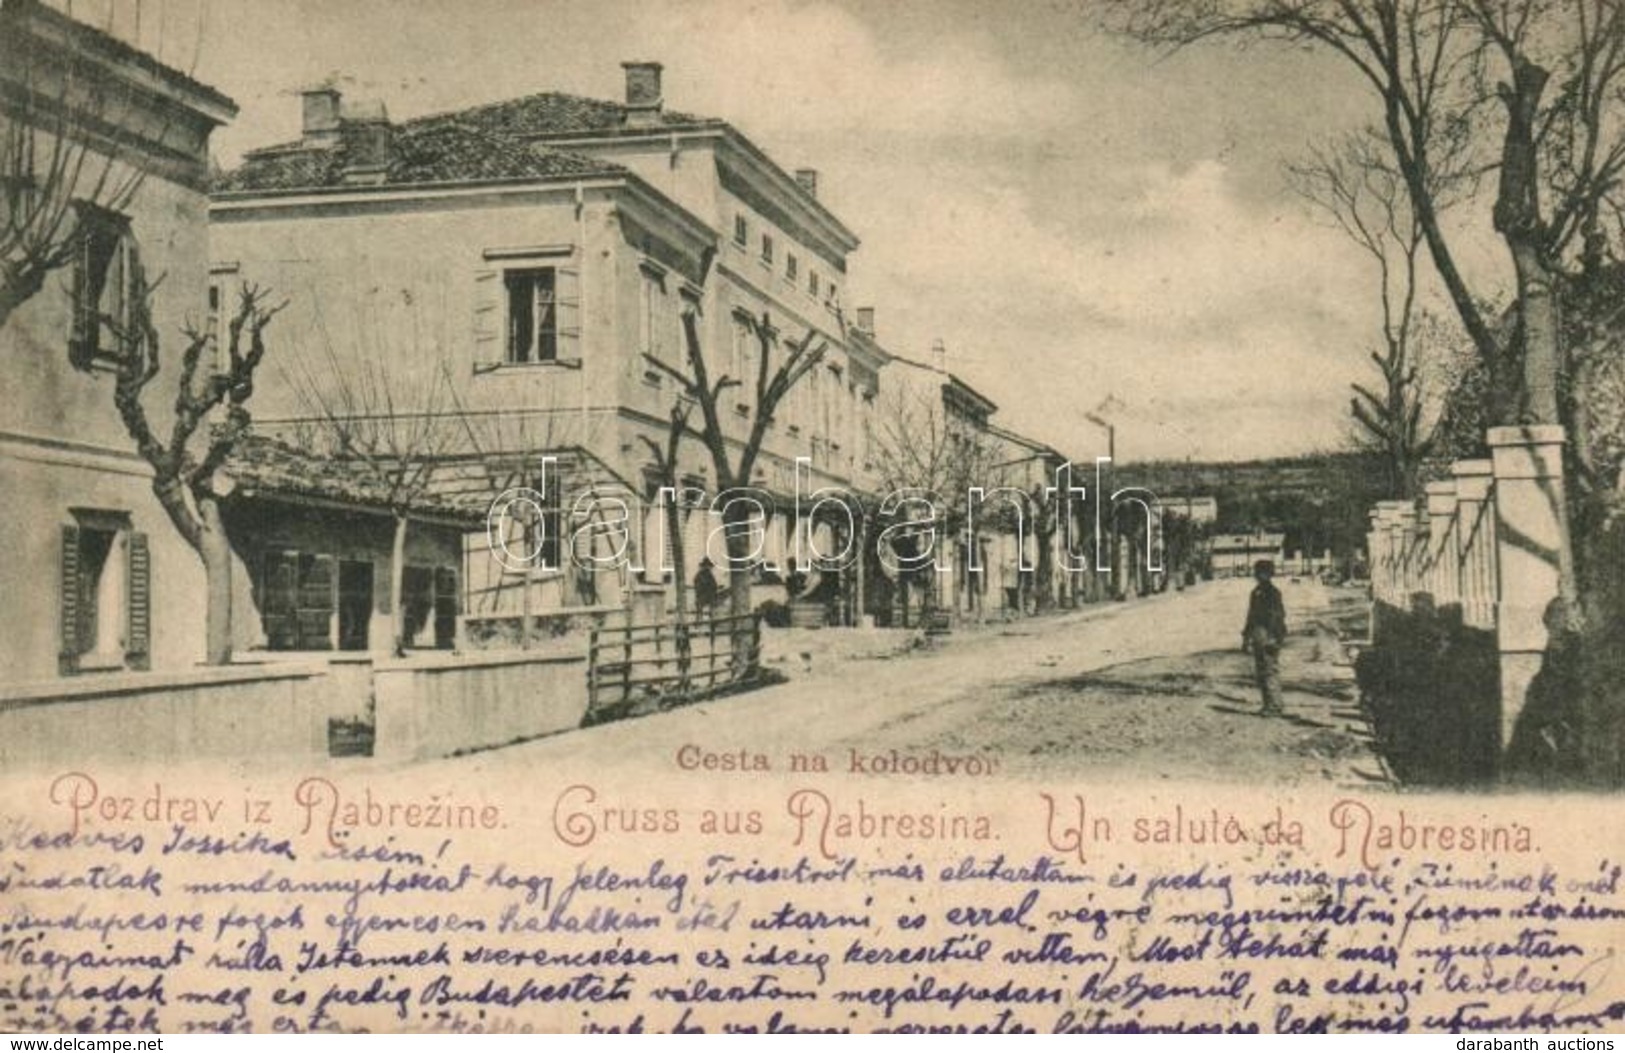 darabanth
Cesta na kolodvor
Pozdrav iz Nabrežine. Gruss aus Nabresina. Un saluto da Nabresina.
Kedves Jossika Öcsém!
Tudatlak mindannyitokat hogy jelenleg Triesztről már elutaztam és pedig vissza felé, Fiuménak
Budapesre fogok egyenesen utazni, és errel végre megszüntetni fogom utazásom
Vágyaimat rálla Istennek szerencsésen ez ideig keresztül vittem, Most tehát már nyugottan
álapodok meg és pedig Budapestet választom megálapodási helyemül, az eddigi leveleim